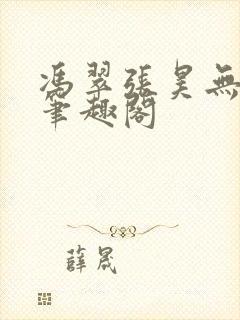 馮翠張昊無
筆趣閣
薛晟